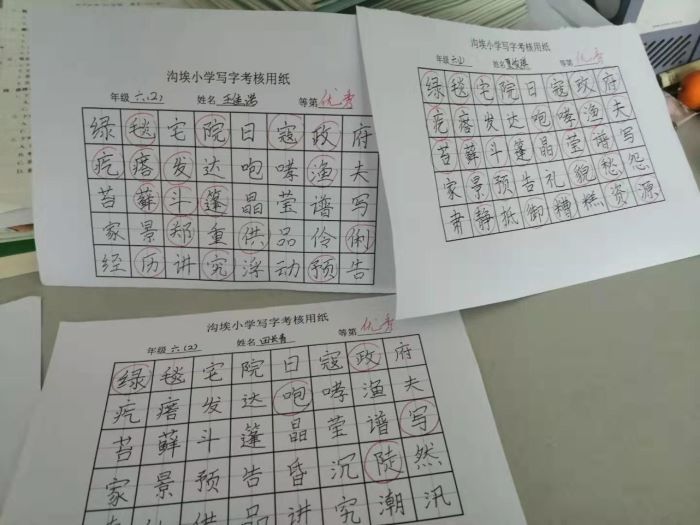 沟埃小学写字考核用纸
年级 六(2) 姓名 王佳 等第 优秀
绿毯宅院日寇政府
疙瘩发达咆哮渔夫
苔藓斗篷晶莹谱写
家景郑重供品伶俐
经历讲究浮动预告
沟埃小学写字考核用纸
年级 六(2) 姓名 等第 优秀
绿毯宅院日寇政府
疙瘩发达咆哮渔夫
苔藓斗篷晶莹谱写
家景预告礼貌愁怨
肃静抵御糟糕资源
沟埃小学写字考核用纸
年级 六(2) 姓名 田 等第 优秀
绿毯宅院日寇政府
疙瘩发达咆哮渔夫
苔藓斗篷晶莹谱写
家景预告昏沉陡然
供品讲究潮汛